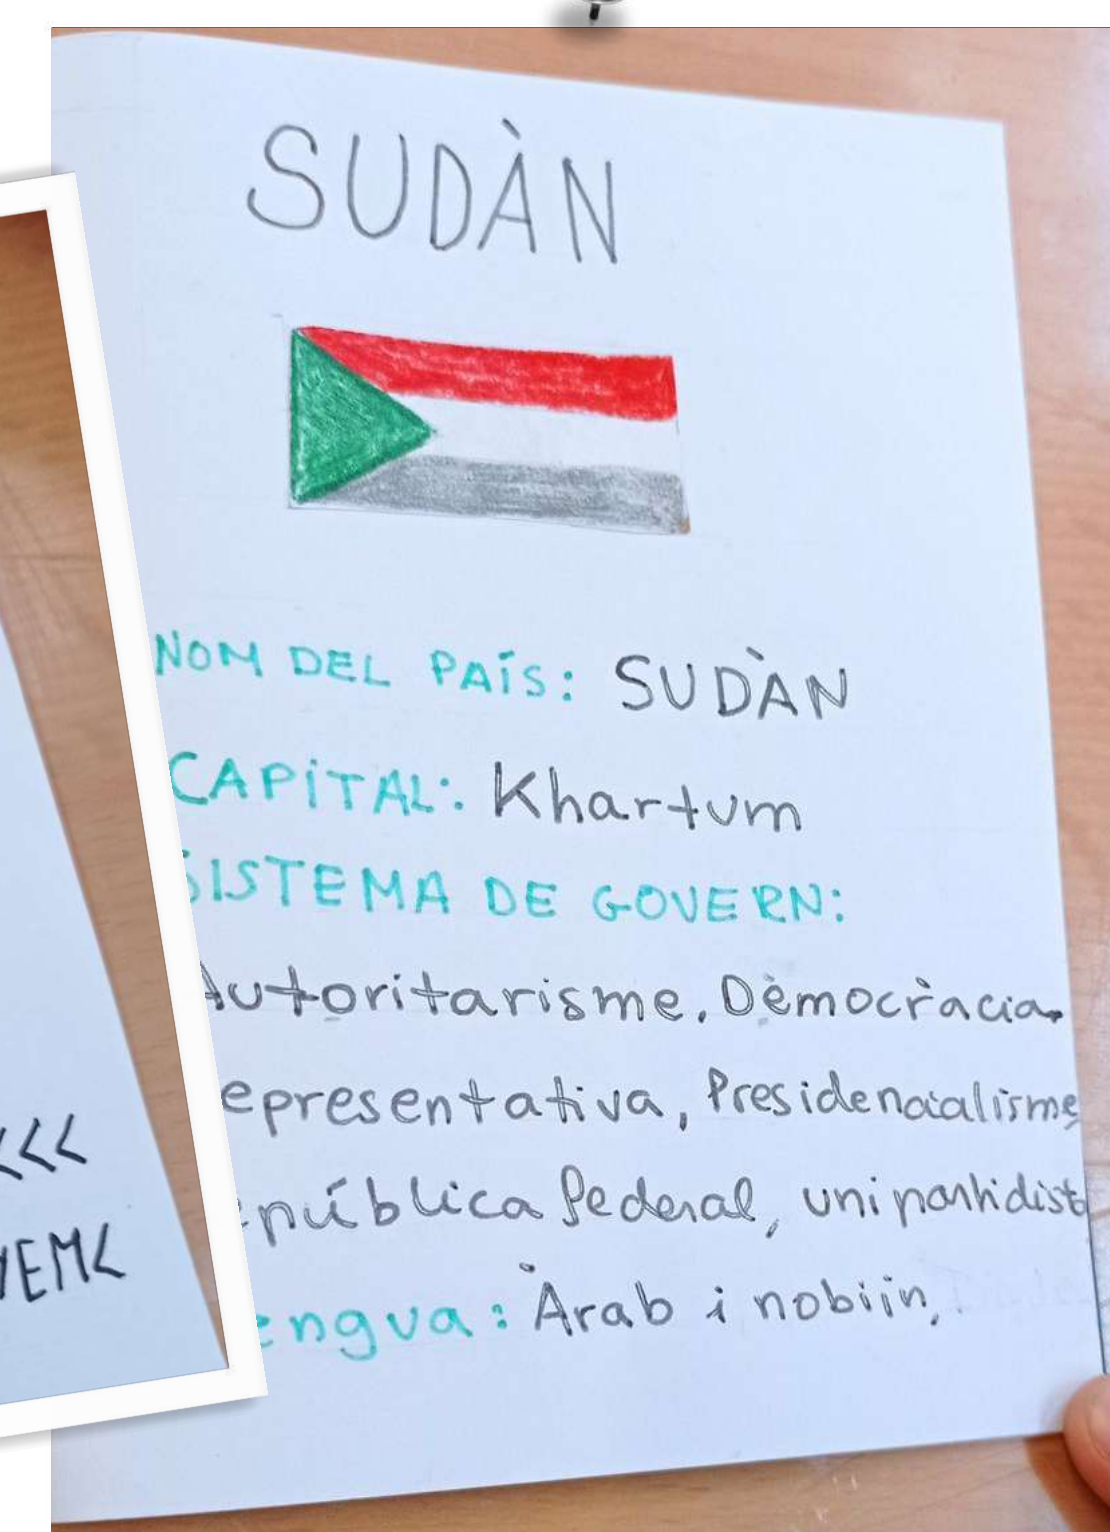 SUDÀN
NOM DEL PAÍS: SUDÀN
CAPITAL: Khartum
SISTEMA DE GOVERN:
Autoritarisme, Dèmocràcia
epresentativa, Presidencialisme
epública federal, unipartidist
engua: Àrab i nobiin,
<<<
YEM<